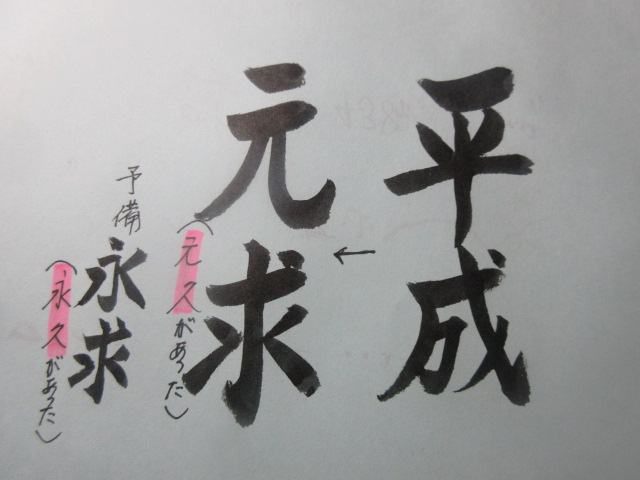 平成
←
元求
（元久があった）
予備
永求
（永久があった）